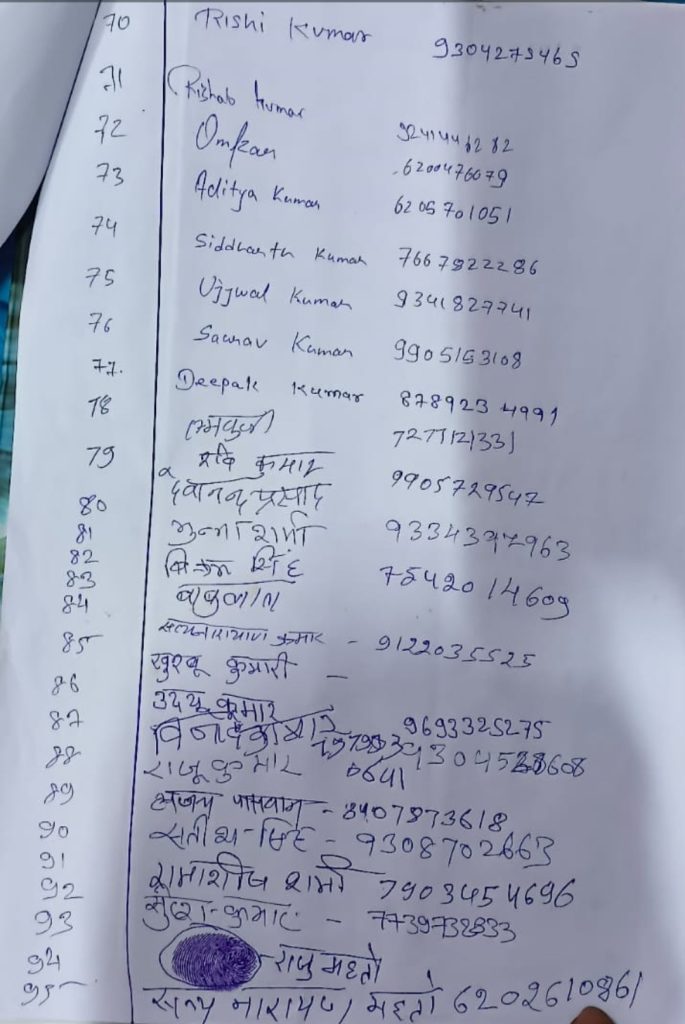 70 Rishi Kumar 9304275465
71 Rishab Kumar
72 Omkar 9241446282
73 Aditya Kumar 6200476079
6205701051
74 Siddhanth Kumar 7667822286
75 Ujjwal Kumar 9341827741
76 Saurav Kumar 9905153108
77. Deepak Kumar 8789234991
78 7277121331
79 रवि कुमार
80 देवानन्द प्रसाद 9905729547
81 मुन्ना शर्मा 9334397963
82 सिंह 7542014609
83
84 सत्यनारायण कुमार - 9122035525
85 खुश्बू कुमारी -
86 उदय कुमार 9693325275
87
88 राजू कुमार 0641
89 अजय पासवान - 8407873618
90 सतीश सिंह - 9308702663
91
92 रामाशीष शर्मा 7903454696
93 कुमार - 7739738833
94 राजु महतो
95 सत्य नारायण महतो 6202610861